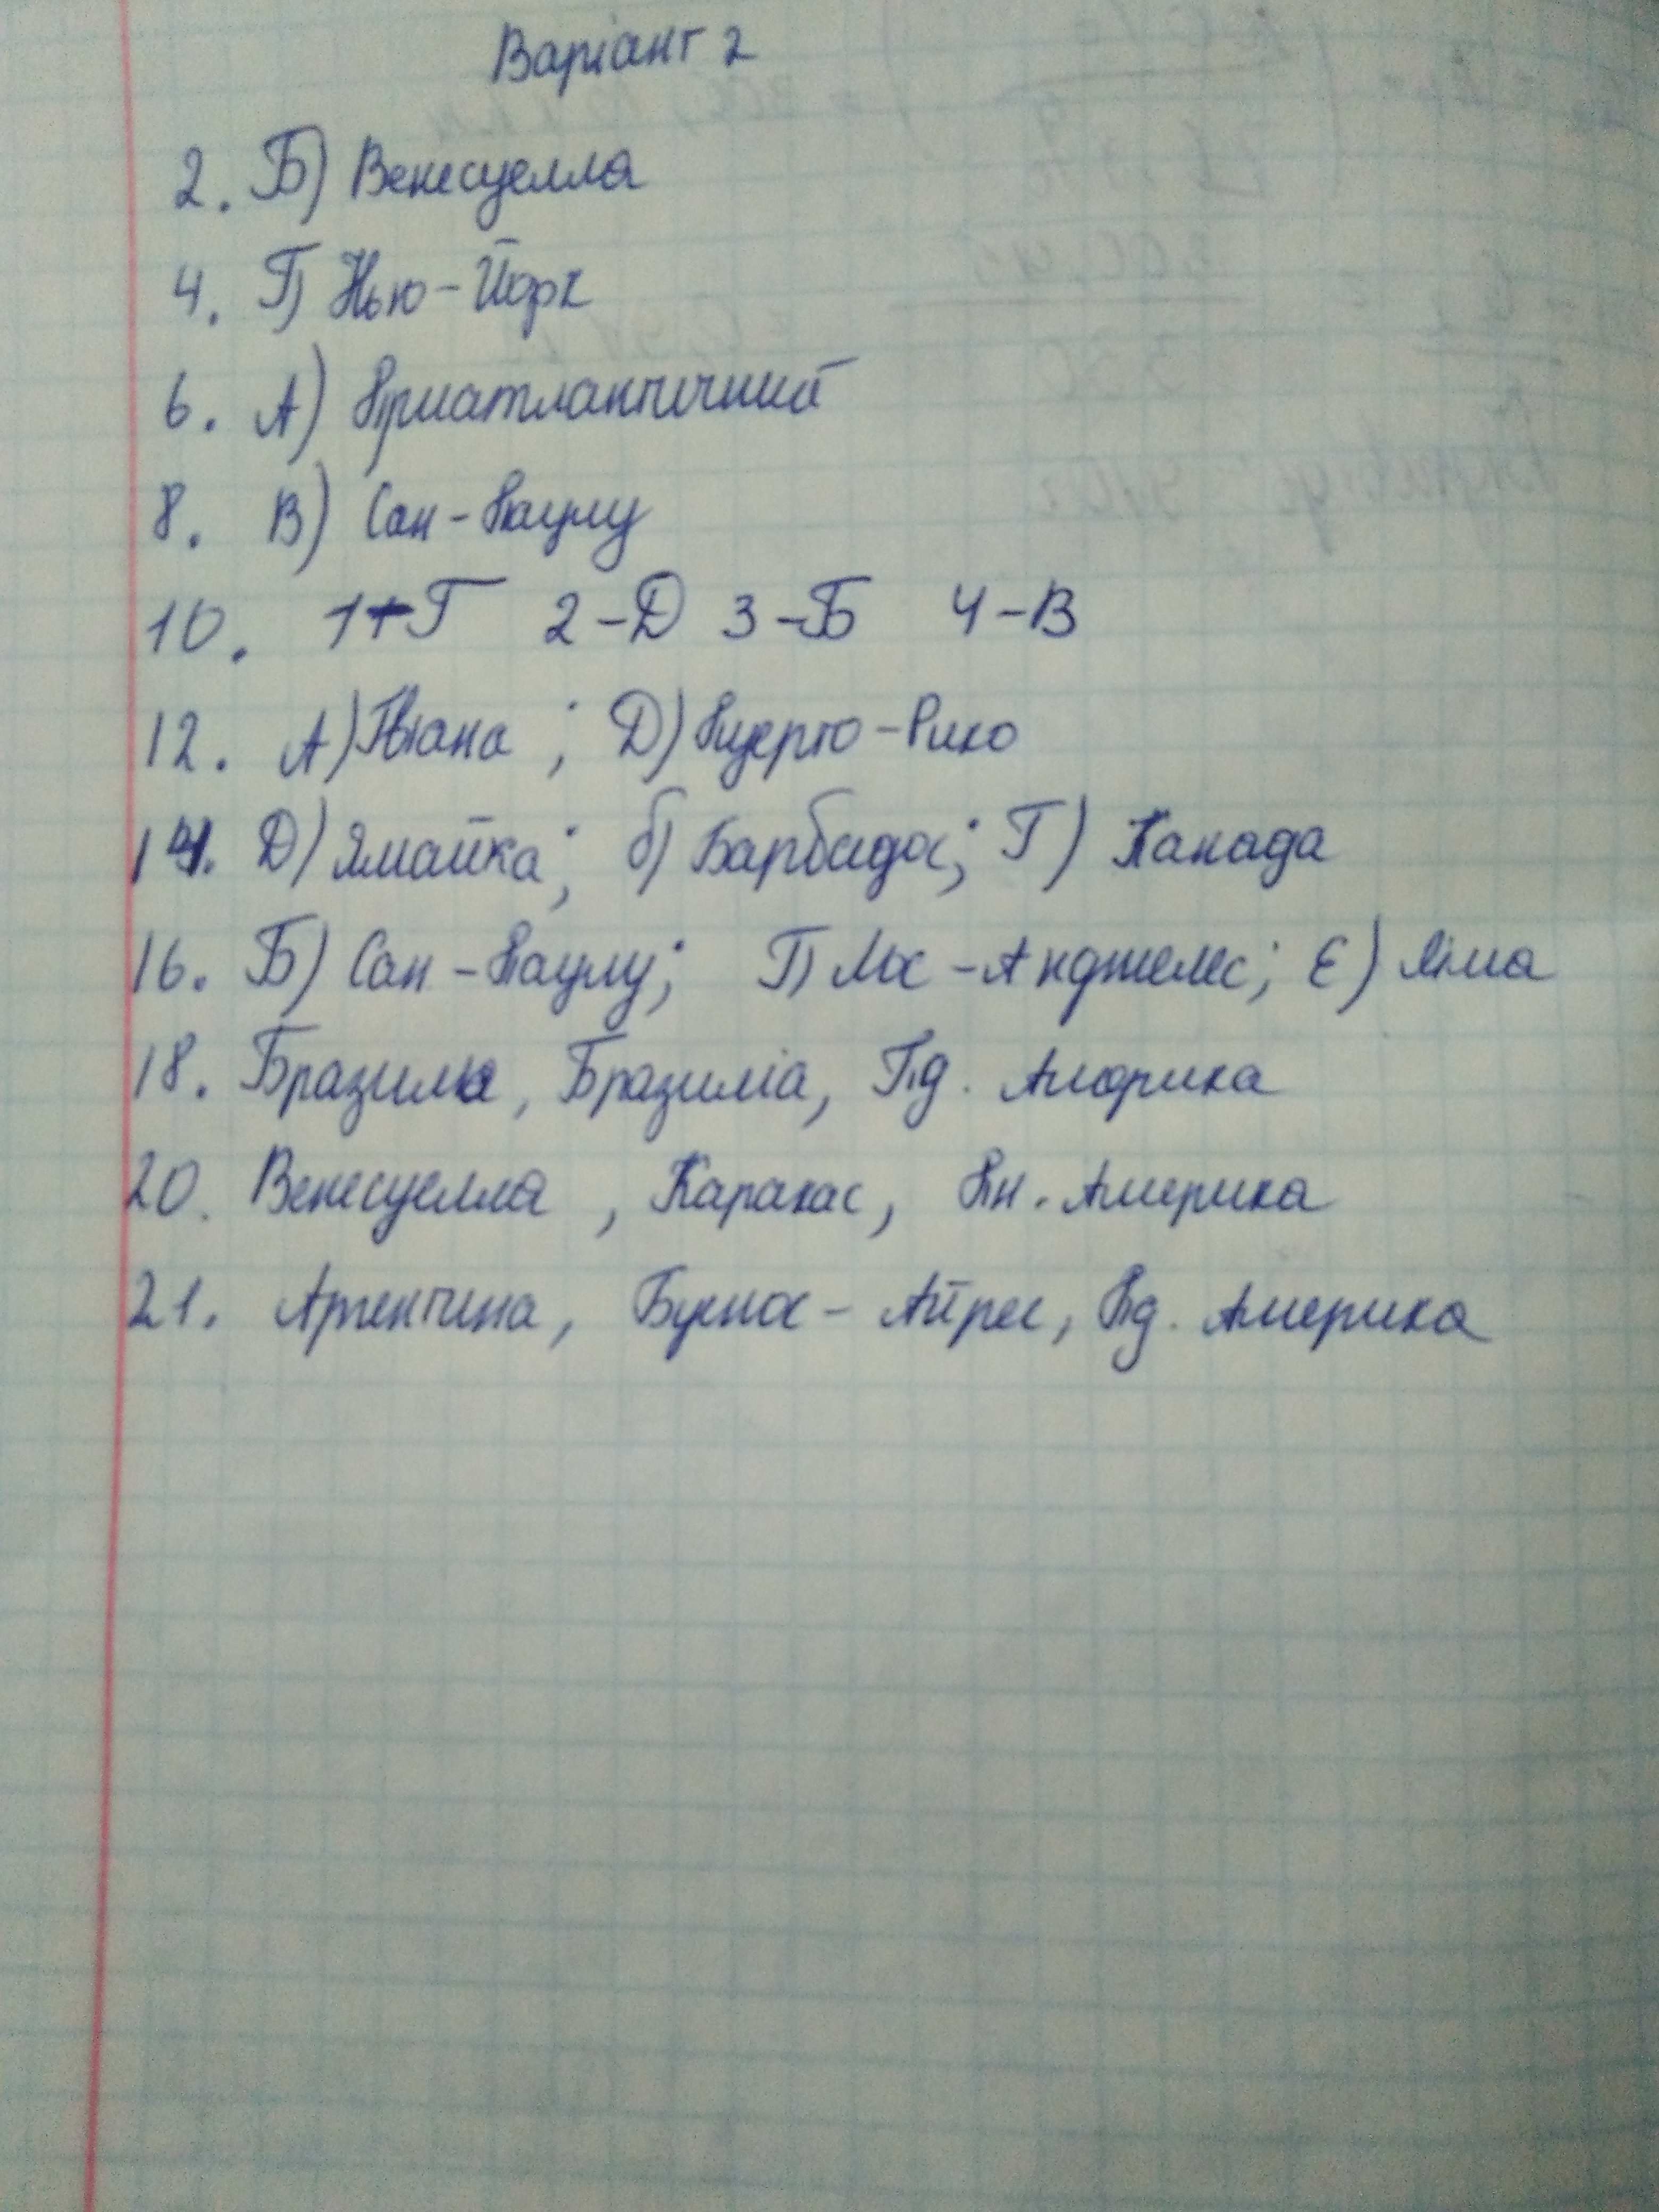 Варіант 2
2. Б) Венесуелла
4. Г) Нью-Йорк
6. А) Приатлантичний
8. В) Сан-Паулу
10. 1-Г 2-Д 3-Б 4-В
12. А) Гвіана ; Д) Пуерто-Рико
14. Д) Ямайка; б) Барбадос; Г) Канада
16. Б) Сан-Паулу; Г) Лос-Анджелес; Є) Ліма
18. Бразилія, Бразиліа, Пд. Америка
20. Венесуелла, Каракас, Пн. Америка
21. Аргентина, Буенос-Айрес, Пд. Америка